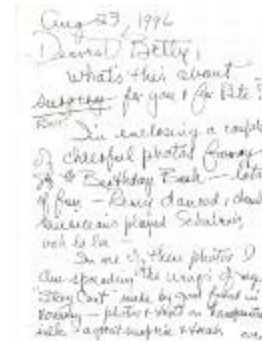 Aug 23, 1996
Dearest Betty,
What's this about
surgery for you & for Pete?
I'm enclosing a couple
of cheerful photos from
my Birthday Bash — lots
of fun — Remy danced,
musicians played Schubert,
ooh la la —
In one of these photos I
am spreading the wings of my
"Story Coat" made by good friend in
— photos & text on
silk — a great surprise &
over